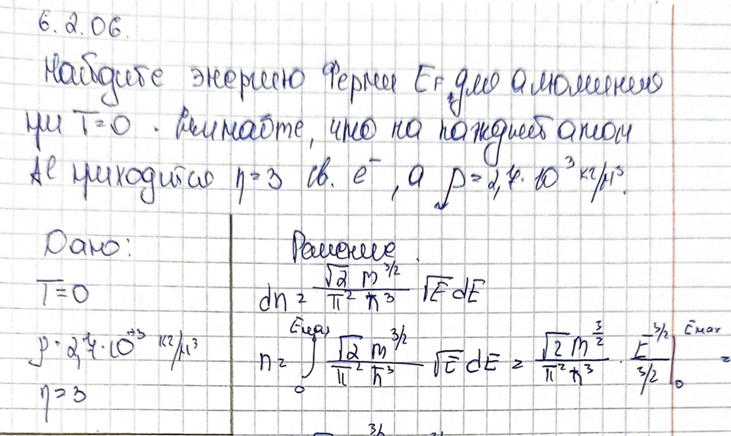 6.2.06.
Найдите энергию Ферми E_F для алюминия
при T=0. Считайте, что на каждый атом
Al приходится η=3 св. e⁻, а ρ=2,7·10³ кг/м³.
Дано:
T=0
ρ=2,7·10⁺³ кг/м³
η=3
Решение.
dn = √2 m^{3/2} / π² ħ³ √E dE
n = ∫₀^{Emax} √2 m^{3/2} / π² ħ³ √E dE = √2 m^{3/2} / π² ħ³ · E^{3/2} / 3/2 |₀^{Emax} =